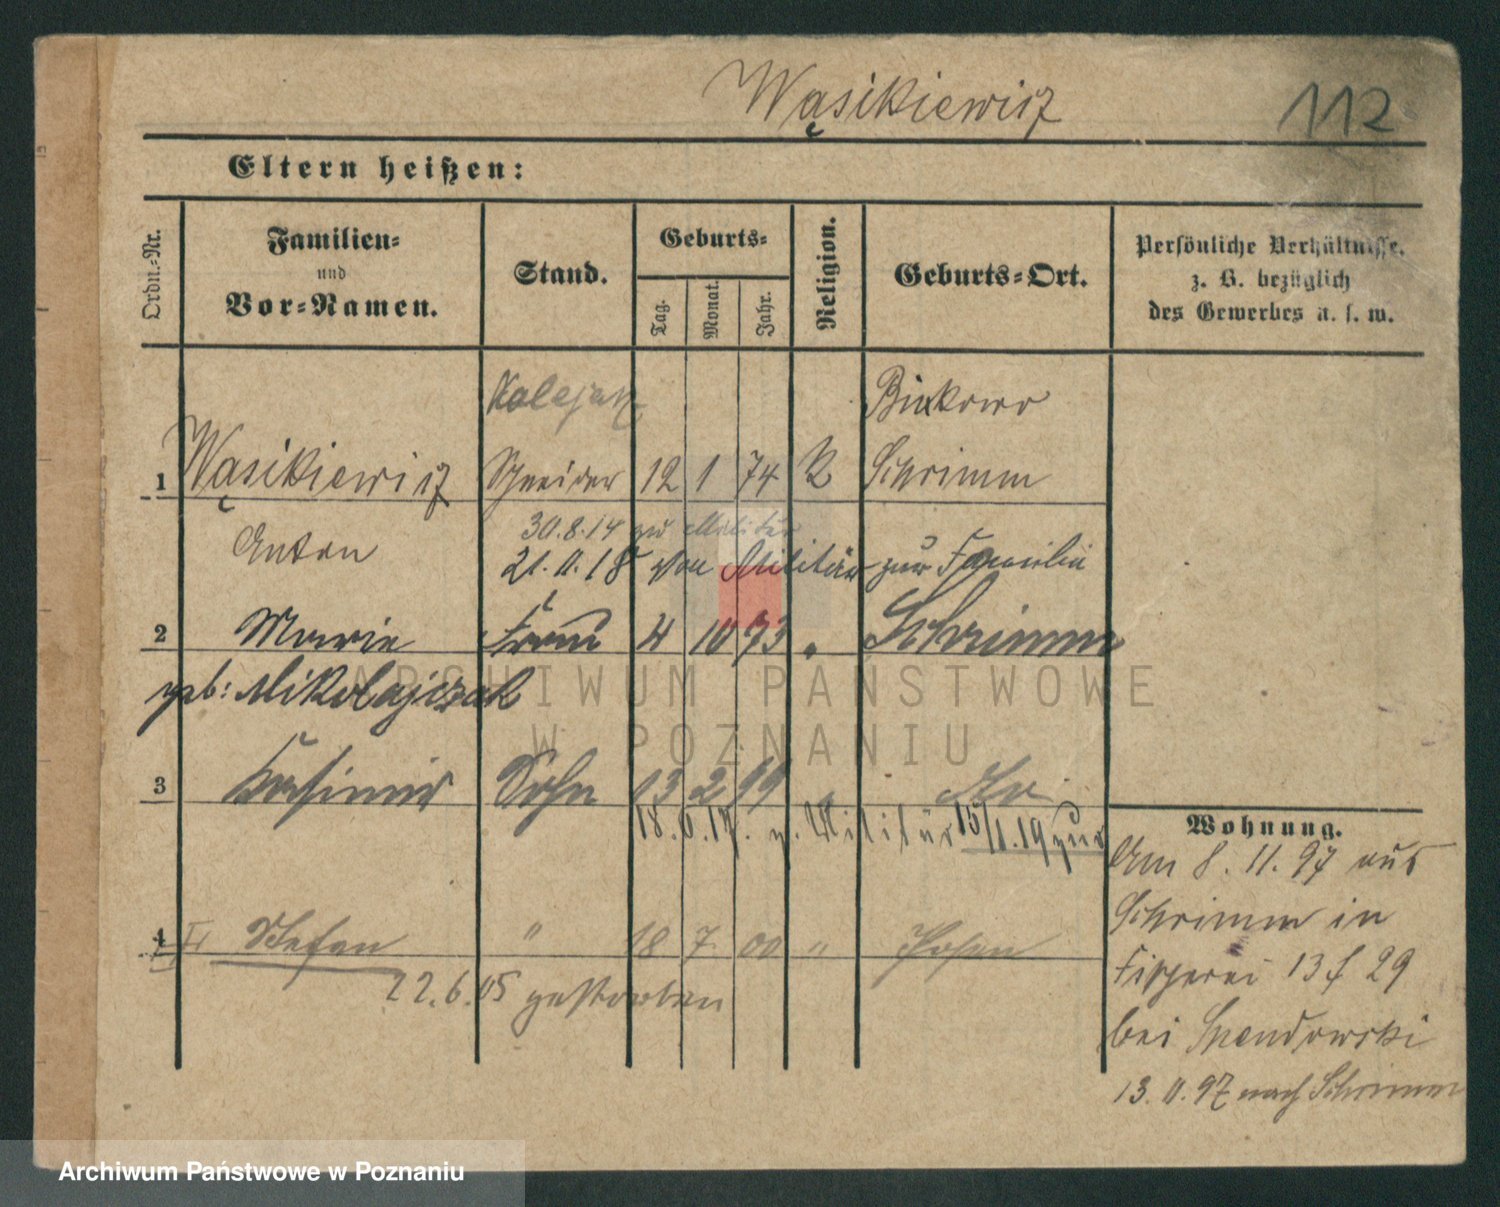 Wąsikiewicz 112
Eltern heißen:
Ordn.-Nr.
Familien-
und
Vor-Namen.
Stand.
Geburts-
Tag.
Monat.
Jahr.
Religion.
Geburts-Ort.
Persönliche Verhältnisse.
z. B. bezüglich
des Gewerbes u. s. w.
Kolejarz Binkowo
1 Wąsikiewicz Schneider 12 1 74 K Schrimm
30.8.14 zu Militär
Anton 21.11.18 von Militär zur Familie
2 Marie Frau 4 10 73 " Schrimm
geb: Mikołajczak
3 Kasimir Sohn 13 2 99
18.6.17. z. Militär 15/1.19 zur
Wohnung.
Am 8.11.97 aus
Schrimm in
Fischerei 13 f 29
bei
13.11.97 nach Schrimm
4 Stefan " 18 7 00 " Posen
22.6.05 gestorben
ARCHIWUM PAŃSTWOWE
W POZNANIU
Archiwum Państwowe w Poznaniu